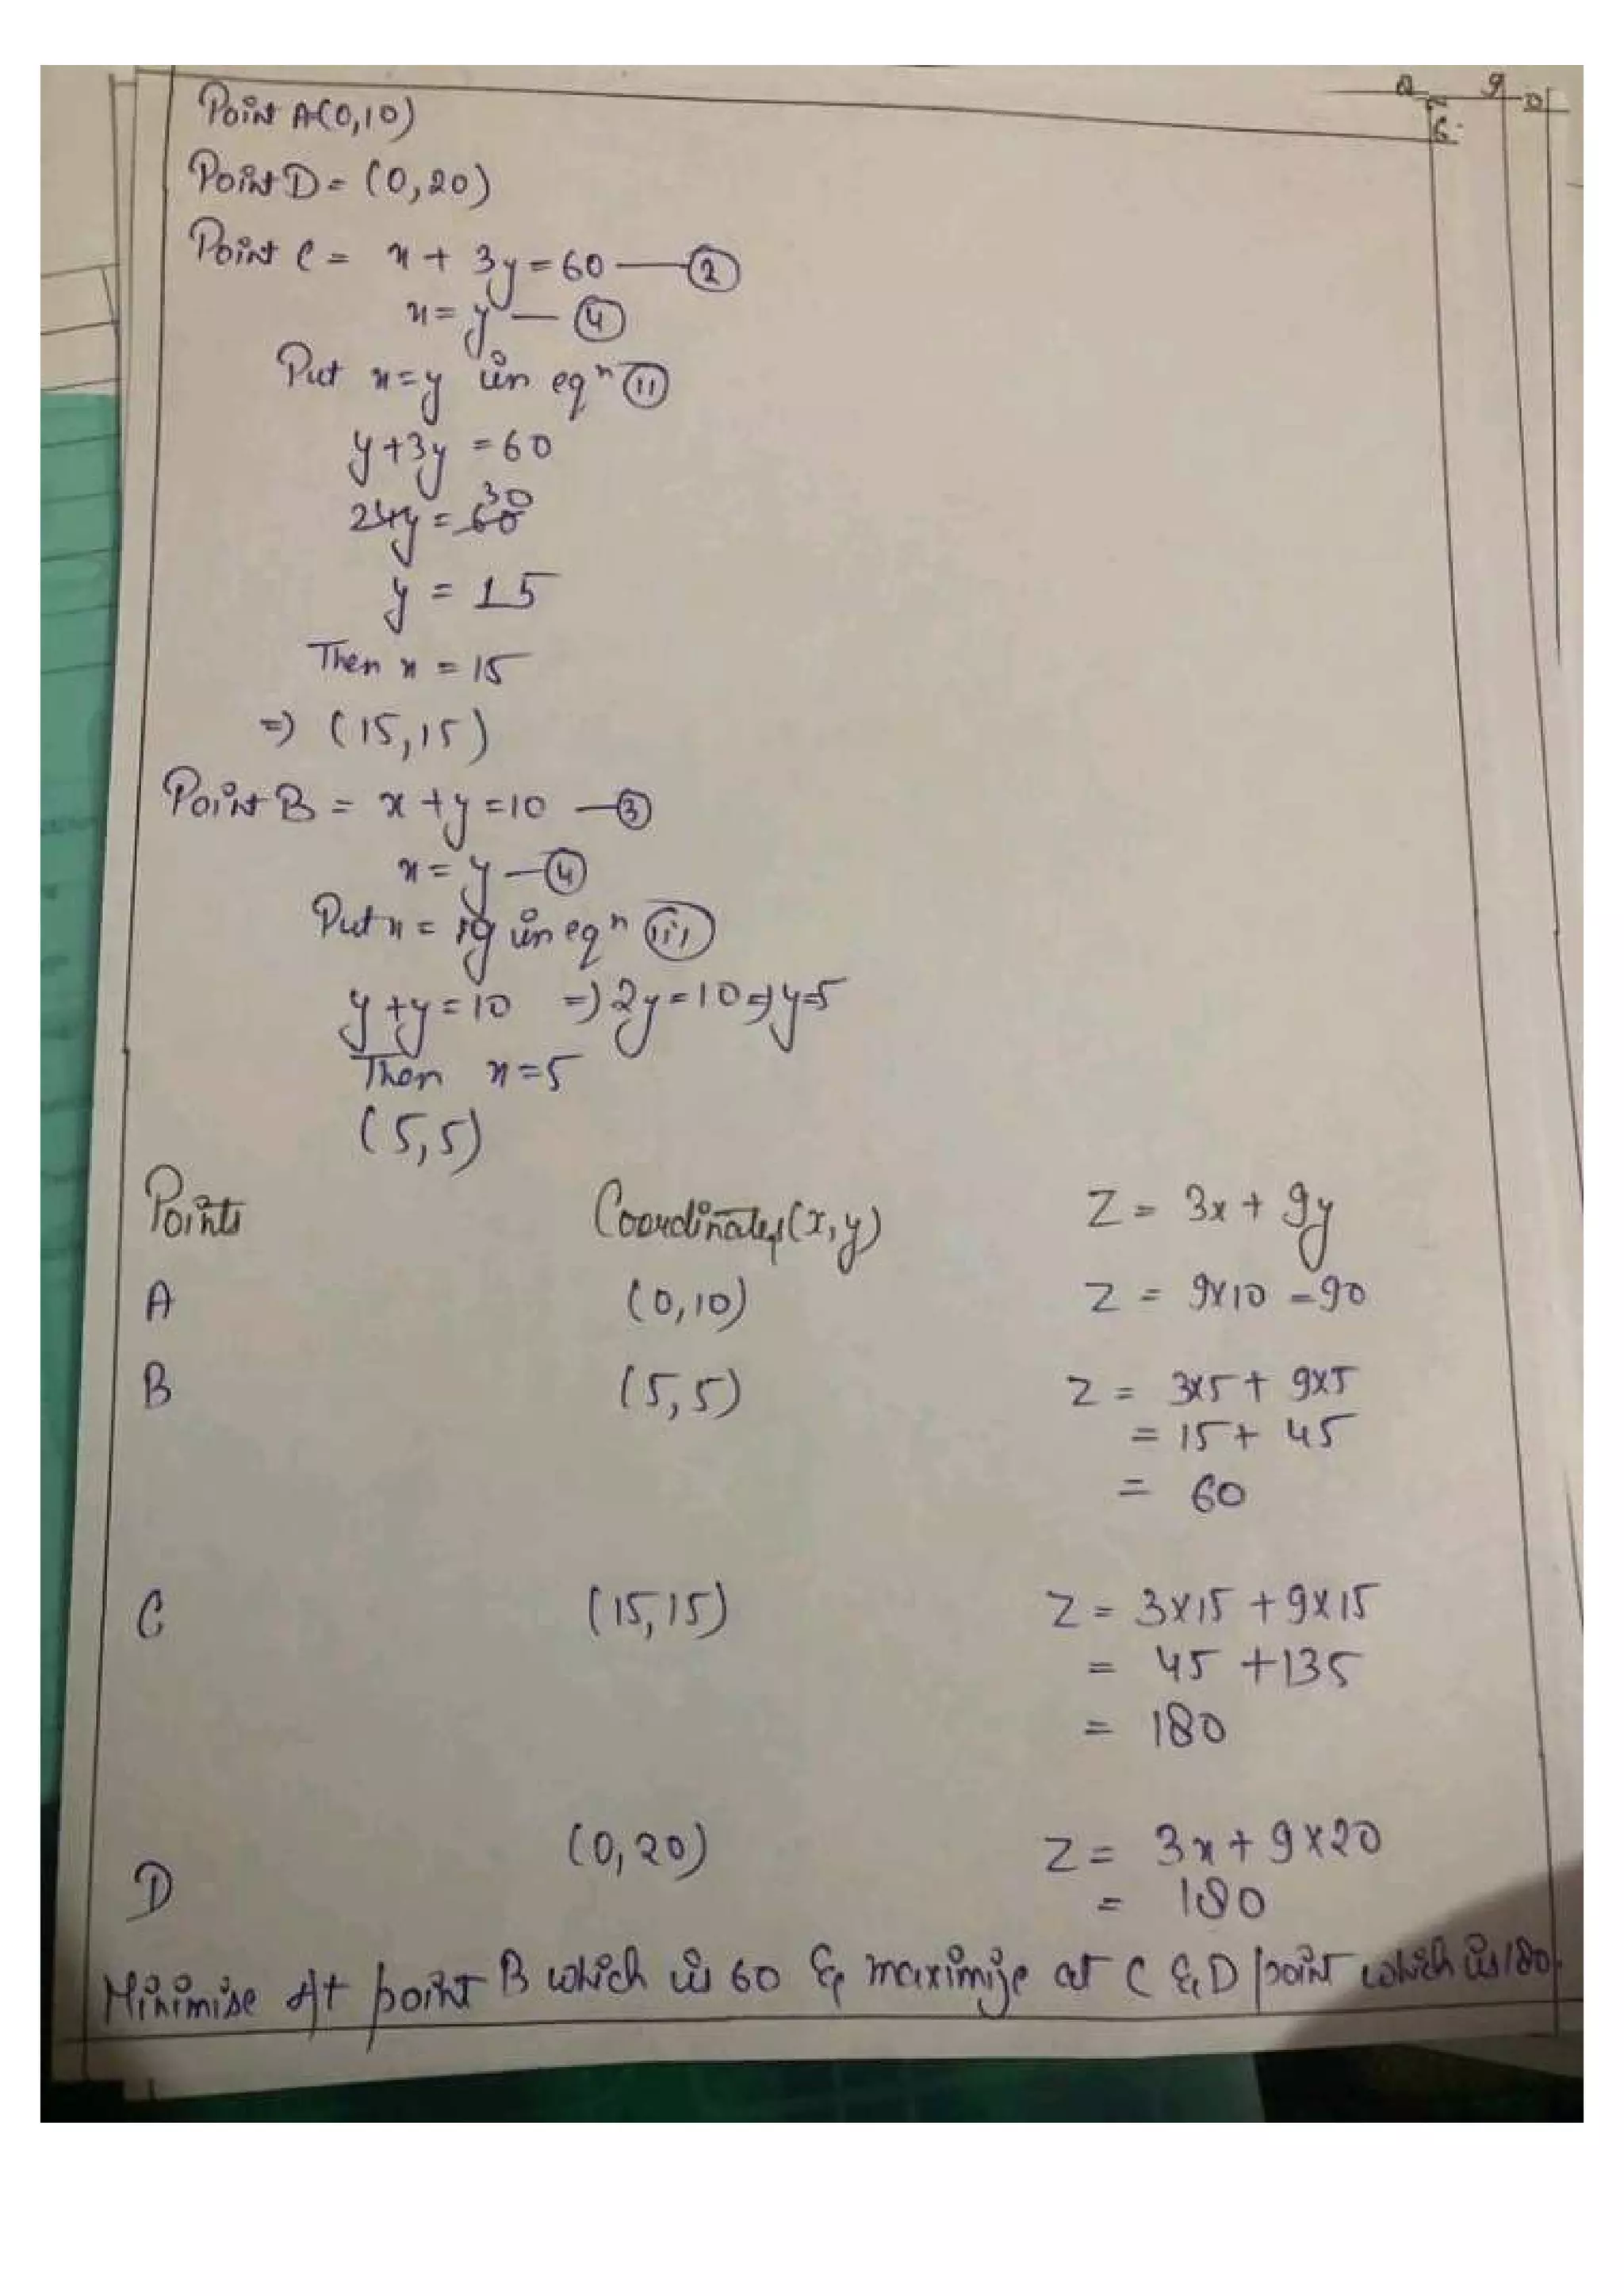 Q 9 D
6
Point A(0,10)
Point D = (0,20)
Point C = x + 3y = 60 — 2
x = y — 4
Put x = y in eqn 11
y + 3y = 60
24y = 60 30
y = 15
Then x = 15
=) (15,15)
Point B = x + y = 10 — 3
x = y — 4
Put x = y in eqn iii
y + y = 10 =) 2y = 10 =) y = 5
Then x = 5
(5,5)
Points Coordinates (x,y) Z = 3x + 9y
A (0,10) Z = 9x10 = 90
B (5,5) Z = 3x5 + 9x5
= 15 + 45
= 60
C (15,15) Z = 3x15 + 9x15
= 45 + 135
= 180
D (0,20) Z = 3x + 9x20
= 180
Minimise At point B which is 60 & maximize at C & D point which is 180.